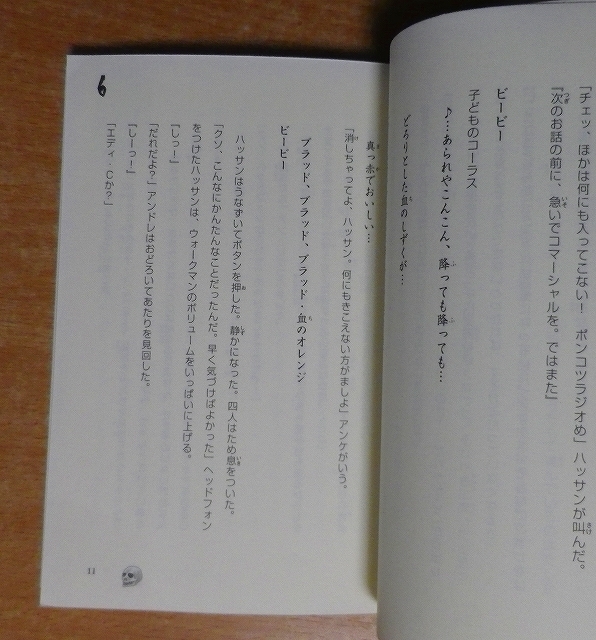 「チェッ、ほかは何にも入ってこない！　ポンコツラジオめ」ハッサンが叫んだ。
『次のお話の前に、急いでコマーシャルを。ではまた』
ビービー
子どものコーラス
♪…あられやこんこん、降っても降っても…
どろりとした血のしずくが…
真っ赤でおいしい…
「消しちゃってよ、ハッサン。何にもきこえない方がましよ」アンケがいう。
ブラッド、ブラッド、ブラッド・血のオレンジ
ビービー
ハッサンはうなずいてボタンを押した。静かになった。四人はため息をついた。
「クソ、こんなにかんたんなことだったんだ。早く気づけばよかった」ヘッドフォン
をつけたハッサンは、ウォークマンのボリュームをいっぱいに上げる。
「しっ！」
「だれだよ？」アンドレはおどろいてあたりを見回した。
「しーっ！」
「エディ・Cか？」
6
11